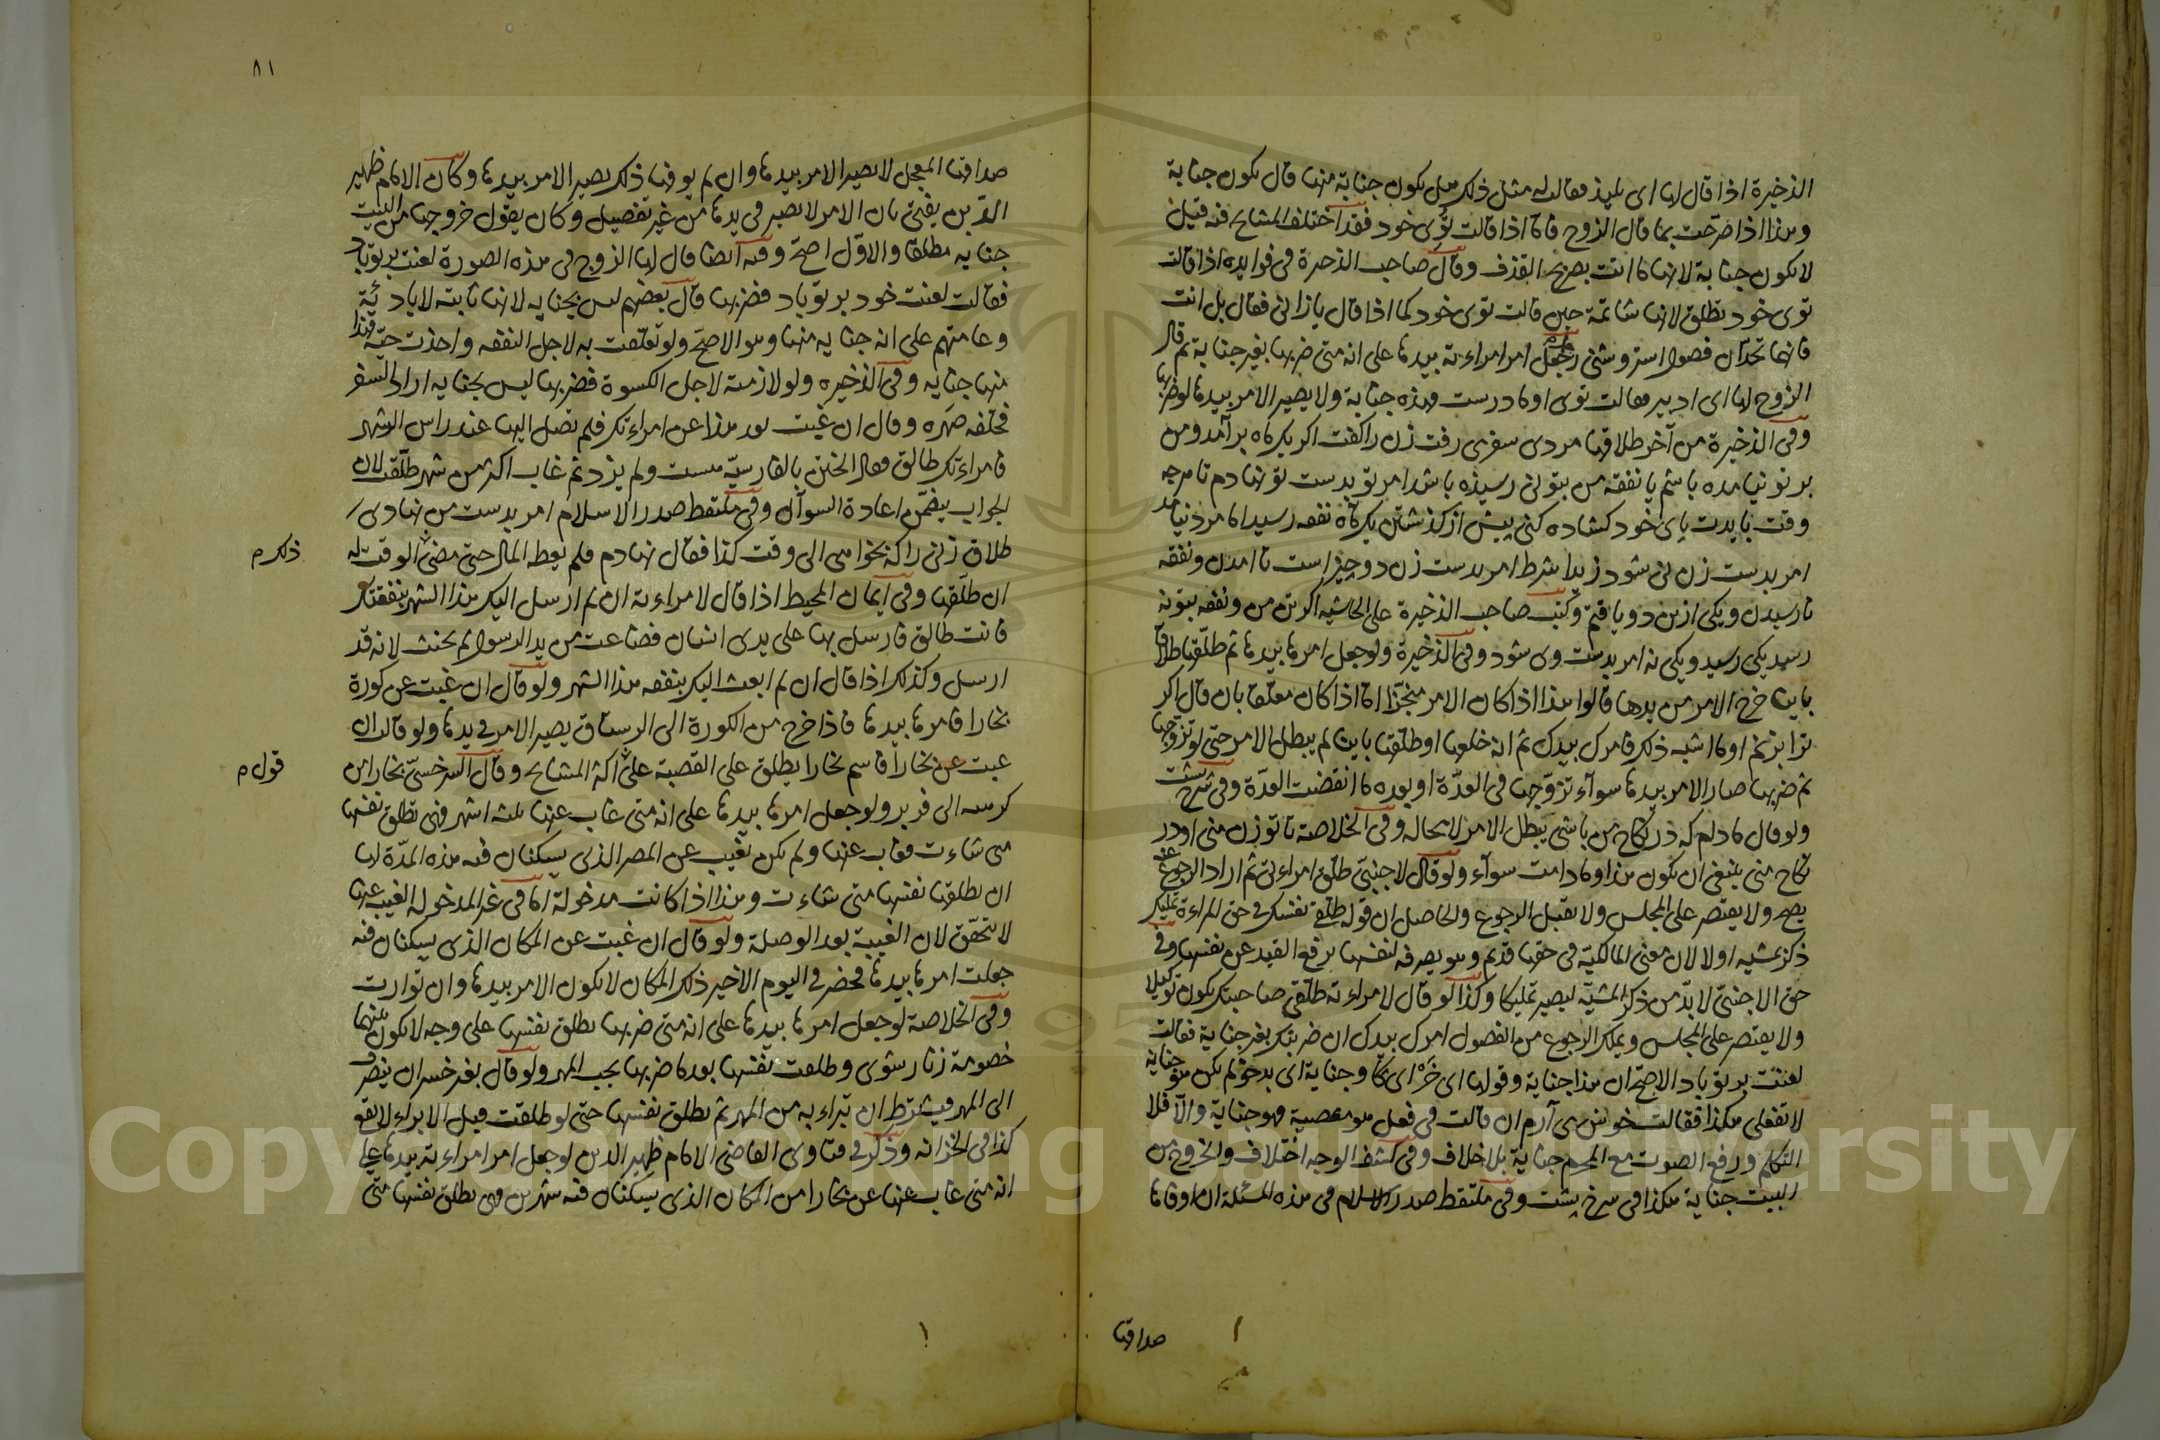 الذخيرة اذا قال لها اى بليد فقالت له مثل ذلك هل يكون جناية منها قال يكون جناية
وهذا اذا صرحت بما قال الزوج فاما اذا قالت توى خود فقد اختلف المشايخ فيه قيل
لا يكون جناية لانها ما اتت بصريح القذف وقال صاحب الذخيرة فى فوايده اذا قالت
توى خود تطلق لانها شاتمة حين قالت توى خود كما اذا قال يا زانى فقال بل انت
فانهما تحدان فصول استروشنى رجل جعل امر امراءته بيدها على انه متى ضربها بغير جناية ثم قال
الزوج لها اى ادبير فقالت توى او مادرست فهذه جناية ولا يصير الامر بيدها لو ضربها
وفى الذخيرة من آخر طلاقها مردى سفرى رفت زن را كفت اكر يكماه برآمد ومن
بر تو نيامده باشم يا نفقه من بتو نى رسيده باشد امر تو بدست تو نهادم تا هرچه
وقت بايدت پاى خود كشاده كنى پيش از كذشتن يكماه نفقه رسيد اما مرد نيامد
امر بدست زن نى شود زيرا شرط امر بدست زن دو چيز است نا امدن ونفقه
نارسيدن ويكى ازين دو يافتم وكتب صاحب الذخيرة على الحاشيه اكر تن من ونفقه بتو نه
رسيد يكى رسيد ويكى نه امر بدست وى شود وفى الذخيرة ولو جعل امرها بيدها ثم طلقها طلاقا
باينا خرج الامر من يدها قالوا هذا اذا كان الامر منجزا اما اذا كان معلقا بان قال اكر
ترا بزنم او ما اشبه ذلك فامرك بيدك ثم انه خلعها او طلقها باينا لم يبطل الامر حتى لو تزوجها
ثم ضربها صار الامر بيدها سوآء تزوجها فى العدة او بعد ما انقضت العدة وفى سرخ پشت
ولو قال مادام كه در نكاح من باشى يبطل الامر لا محاله وفى الخلاصة تا تو زن منى او در
نكاح منى ينبغى ان يكون هذا وما دامت سوآء ولو قال لاجنبى طلق امراءتى ثم اراد الرجوع عنه
يصح ولا يقتصر على المجلس ولا يقبل الرجوع والحاصل ان قوله طلقى نفسك فى حق المراءة تمليك
ذكر مشيه او لا لان معنى المالكية فى حقها قديم وهو يصرفه لنفسها برفع القيد عن نفسها وفى
حق الاجنبى لا بد من ذكر المشية ليصير تمليكا وكذا لو قال لامراءته طلقى صاحبتك يكون توكيلا
ولا يقتصر على المجلس ويملك الرجوع من الفصول امرك بيدك ان ضربتك بغير جناية فقالت
لعنت بر تو باد الاصح ان هذا جناية وقولها اى خره اى كا وجناية اى بدخو لم يكن هو جناية
لا تفعلى هكذا فقالت خوش مى آرم ان قالت فى فعل هو معصية فهو جناية والا فلا
التكلم ورفع الصوت مع المحرم جناية بلا خلاف وفى كشف الوجه اختلاف والخروج من
البيت جناية هكذا فى سرخ پشت وفى ملتقط صدر الاسلام فى هذه المسئلة ان اوفاها
صداقها
٨١
صداقها المعجل لا يصير الامر بيدها وان لم يوفها ذلك يصير الامر بيدها وكان الامام ظهير
الدين يفتى بان الامر لا يصير فى يدها من غير تفصيل وكان يقول خروجها من البيت
جنايه مطلقا والاول اصح وفيه ايضا قال لها الزوج فى هذه الصورة لعنت بر تو باد
فقالت لعنت خود بر تو باد فضربها قال بعضهم ليس بجنايه لانها ثابتة لا بادئة
وعامتهم على انه جنايه منها وهو الاصح ولو تعلقت به لاجل النفقه واخذت حقه فهذا
منها جنايه وفى الذخيره ولو لازمته لاجل الكسوة فضربها ليس بجنايه اراد السفر
فحلفه صهره وقال ان غبت بعد هذا عن امراءتك فلم تصل اليها عند راس الشهر
فامراءتك طالق فقال الختن بالفارسية هست ولم يزد ثم غاب اكثر من شهر طلقت لان
الجواب يتضمن اعادة السوآل وفى ملتقط صدر الاسلام امر بدست من نهادى
طلاق زنى را كه بخواهى الى وقت كذا فقال نهادم فلم يعط المال حتى مضى الوقت له
ان طلقها وفى ايمان المحيط اذا قال لامراءته ان لم ارسل اليك هذا الشهر بنفقتك
فانت طالق فارسل بها على يدى انسان فضاعت من يد الرسول لم يحنث لانه قد
ارسل وكذلك اذا قال ان لم ابعث اليك بنفقه هذا الشهر ولو قال ان غبت عن كورة
بخارا فامرها بيدها فاذا خرج من الكورة الى الرستاق يصير الامر فى يدها ولو قال ان
غبت عن بخارا فاسم بخارا يطلق على القصبة على اكثر المشايخ وقال السرخسى بخارا من
الى فربر ولو جعل امرها بيدها على انه متى غاب عنها ثلثه اشهر فهى تطلق نفسها
متى شاءت فغاب عنها ولم يكن تغيب عن المصر الذى يسكنان فيه هذه المدة لها
ان يطلقها نفسها متى شاءت وهذا اذا كانت مدخولة اما فى غير المدخوله الغيبة عنها
لا يتحقق لان الغيبة بعد الوصلة ولو قال ان غبت عن المكان الذى يسكنان فيه
جعلت امرها بيدها فحضر فى اليوم الاخير ذلك المكان لا يكون الامر بيدها وان توارت
وفى الخلاصة لو جعل امرها بيدها على انه متى ضربها يطلق نفسها على وجه لا يكون بينهما
خصومة زنا رشوى وطلقت نفسها بعد ما ضربها يجب المهر ولو قال بغير خسران ينصرف
الى المهر فيشترط ان تبراء به من المهر ثم يطلق نفسها حتى لو طلقت قبل الابراء لا يقع
كذا فى الخزانه وذكر فى فتاوى القاضى الامام ظهير الدين لو جعل امر امراءته بيدها على
انه متى غاب عنها عن بخارا من المكان الذى يسكنان فيه شهرين فهى تطلق نفسها متى
ذلك م
قول م
Copy
ng
ud
University